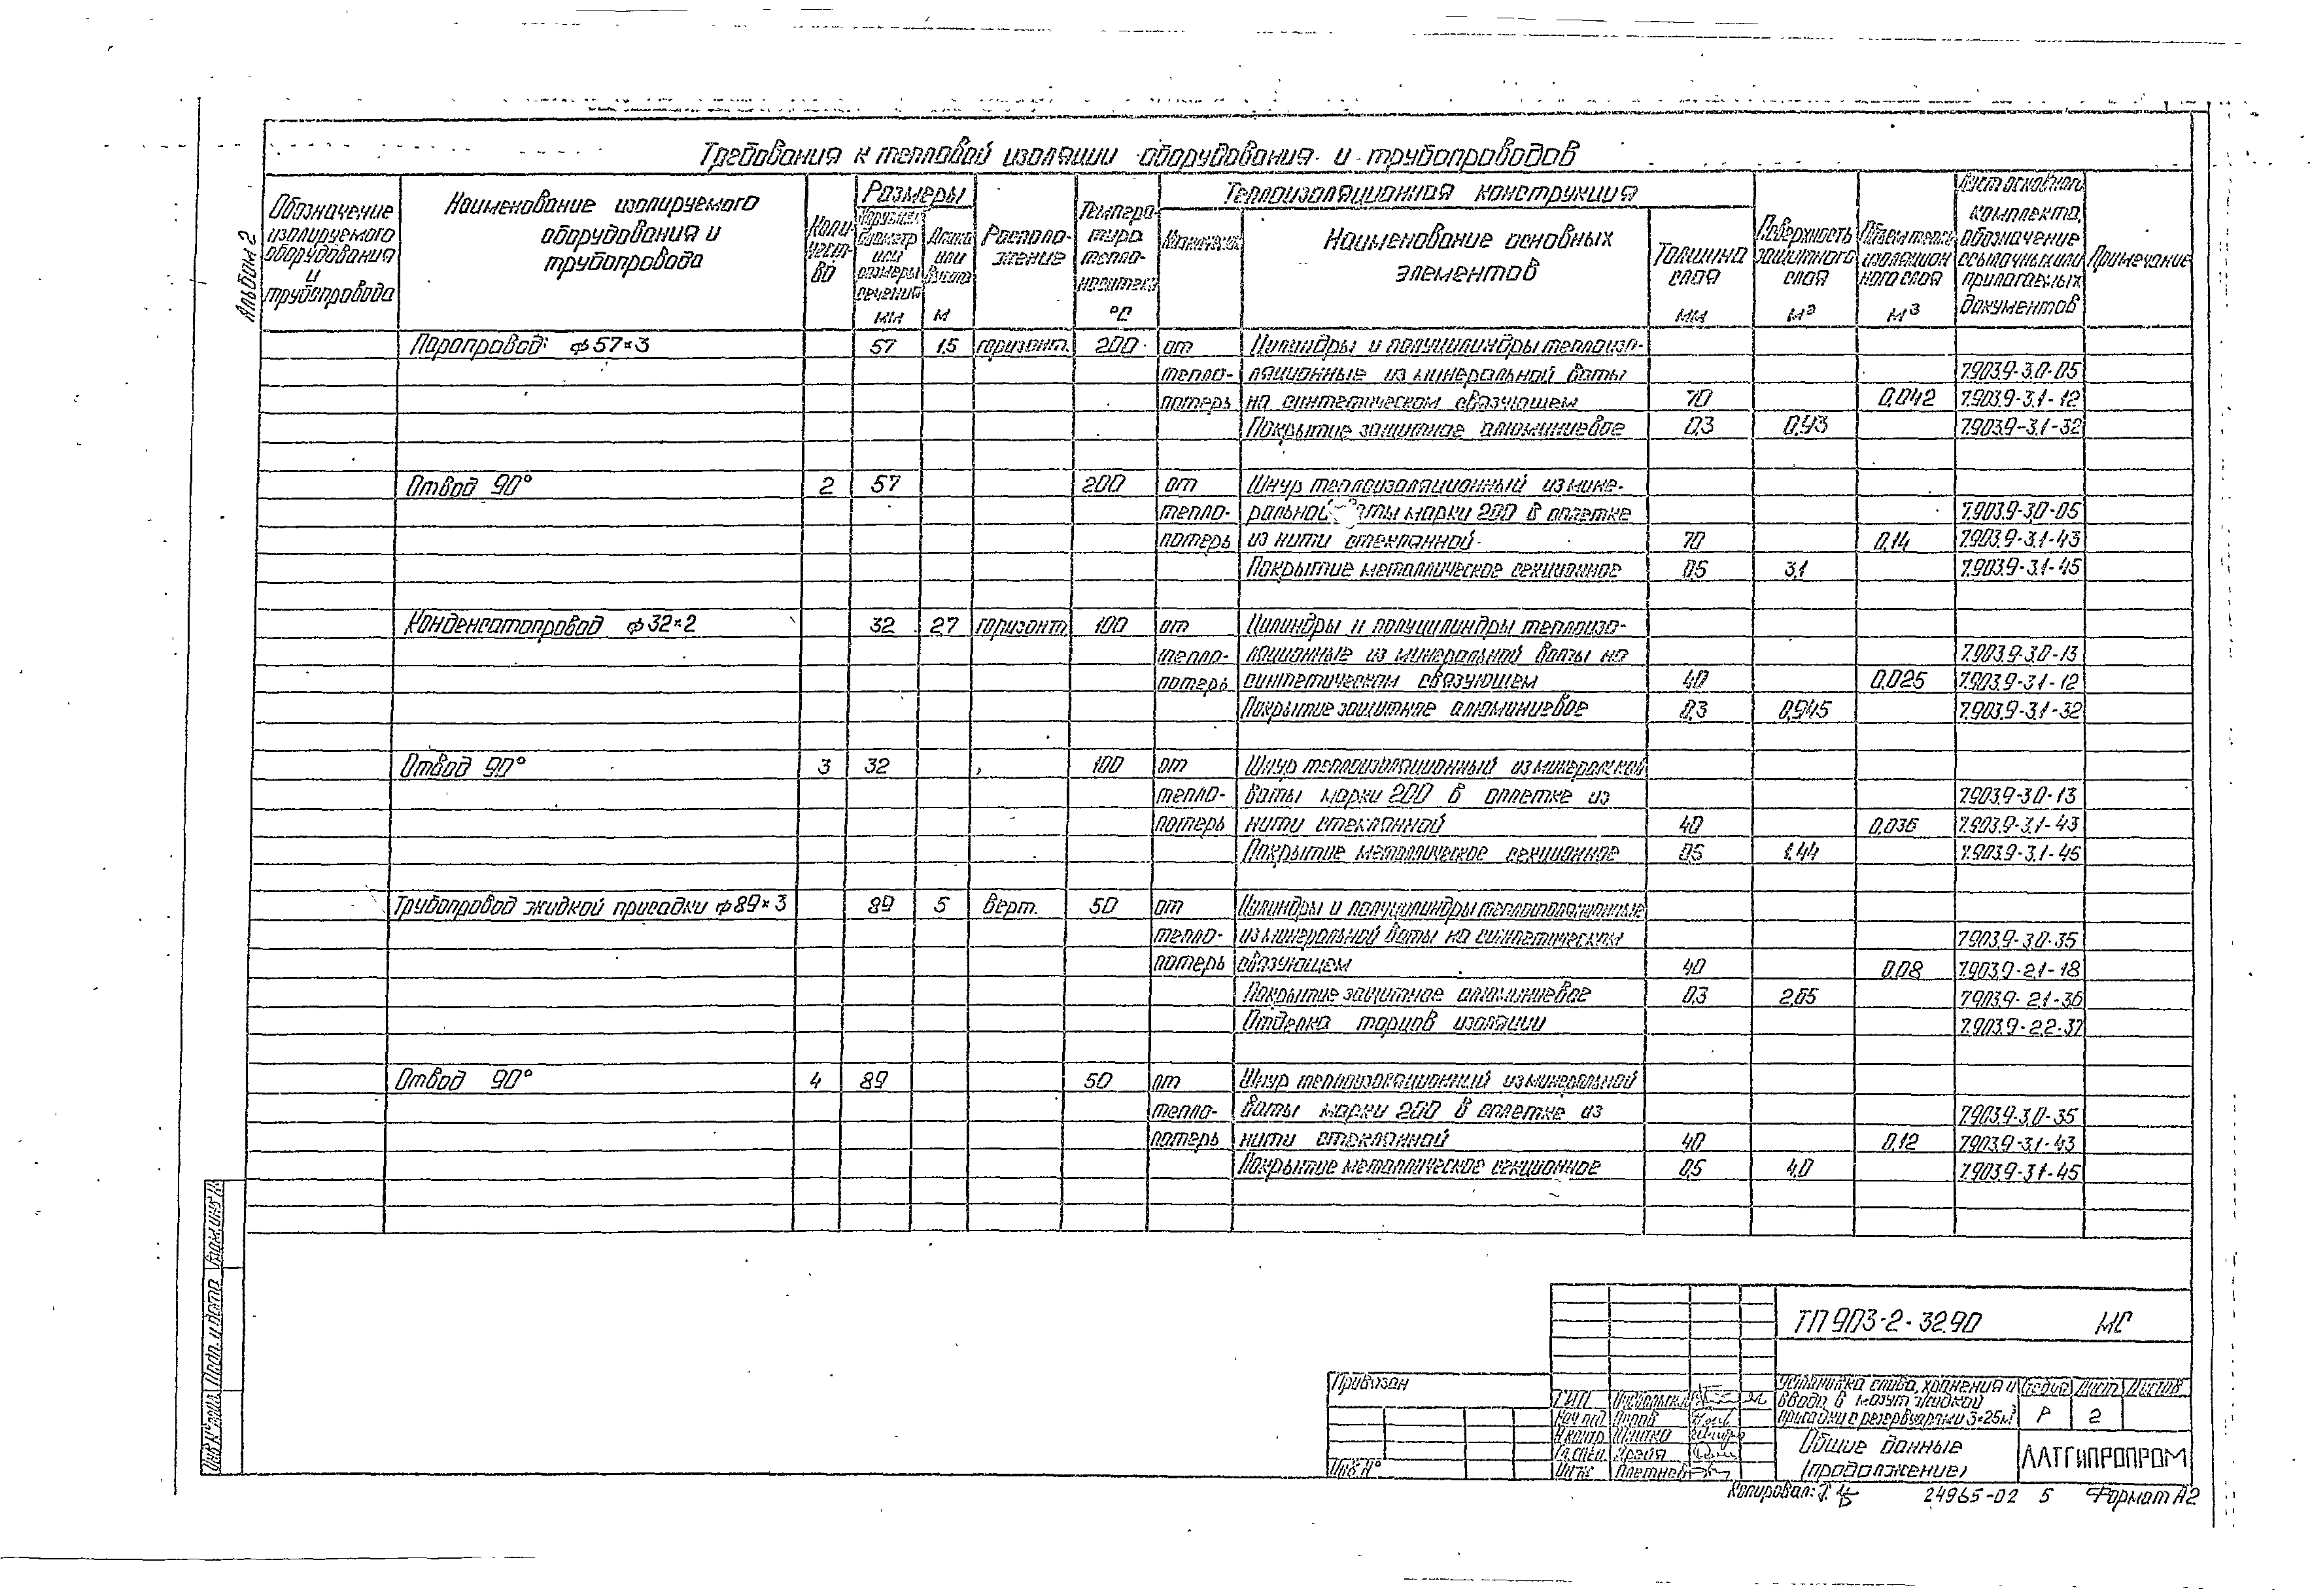 Альбом 2
Требования к тепловой изоляции оборудования и трубопроводов
Обозначение изолируемого оборудования и трубопровода
Наименование изолируемого оборудования и трубопровода
Количество
Размеры
Наружный диаметр или размеры сечения мм
Длина или высота м
Располо-жение
Темпера-тура тепло-носителя °С
Теплоизоляционная конструкция
Назначение
Наименование основных элементов
Толщина слоя мм
Поверхность защитного слоя м²
Объем тепло-изоляцион-ного слоя м³
Лист основного комплекта, обозначение ссылочных или прилагаемых документов
Примечание
Паропровод ф57×3 57 1,5 горизонт. 200 от Цилиндры и полуцилиндры теплоизо-
тепло- ляционные из минеральной ваты 7.903.9-3.0-05
потерь на синтетическом связующем 70 0,042 7.903.9-3.1-12
Покрытие защитное алюминиевое 0,3 0,93 7.903.9-3.1-32
Отвод 90° 2 57 200 от Шнур теплоизоляционный из мине-
тепло- ральной ваты марки 200 в оплетке 7.903.9-3.0-05
потерь из нити стеклянной 70 0,14 7.903.9-3.1-43
Покрытие металлическое секционное 0,5 3,1 7.903.9-3.1-45
Конденсатопровод ф32×2 32 2,7 горизонт 100 от Цилиндры и полуцилиндры теплоизо-
тепло- ляционные из минеральной ваты на 7.903.9-3.0-13
потерь синтетическом связующем 40 0,025 7.903.9-3.1-12
Покрытие защитное алюминиевое 0,3 0,945 7.903.9-3.1-32
Отвод 90° 3 32 100 от Шнур теплоизоляционный из минеральной
тепло- ваты марки 200 в оплетке из 7.903.9-3.0-13
потерь нити стеклянной 40 0,036 7.903.9-3.1-43
Покрытие металлическое секционное 0,5 1,44 7.903.9-3.1-45
Трубопровод жидкой присадки ф89×3 89 5 верт. 50 от Цилиндры и полуцилиндры теплоизоляционные
тепло- из минеральной ваты на синтетическом 7.903.9-3.0-35
потерь связующем 40 0,08 7.903.9-2.1-18
Покрытие защитное алюминиевое 0,3 2,65 7.903.9-2.1-36
Отделка торцов изоляции 7.903.9-2.2-37
Отвод 90° 4 89 50 от Шнур теплоизоляционный из минеральной
тепло- ваты марки 200 в оплетке из 7.903.9-3.0-35
потерь нити стеклянной 40 0,12 7.903.9-3.1-43
Покрытие металлическое секционное 0,5 4,0 7.903.9-3.1-45
Инв.№ подл. Подп. и дата Взам.инв.№
ТП 903-2-32.90 МС
Привязан
Инв.№
ГИП
Нач.отд. Попов
Н.контр.
Гл.спец.
Инж. Плетнев
Установка слива, хранения и
ввода в мазут жидкой
присадки с резервуарами 3×25м³
Стадия Лист Листов
Р 2
Общие данные
(продолжение)
ЛАТГИПРОПРОМ
Копировал:
24965-02 5 Формат А2